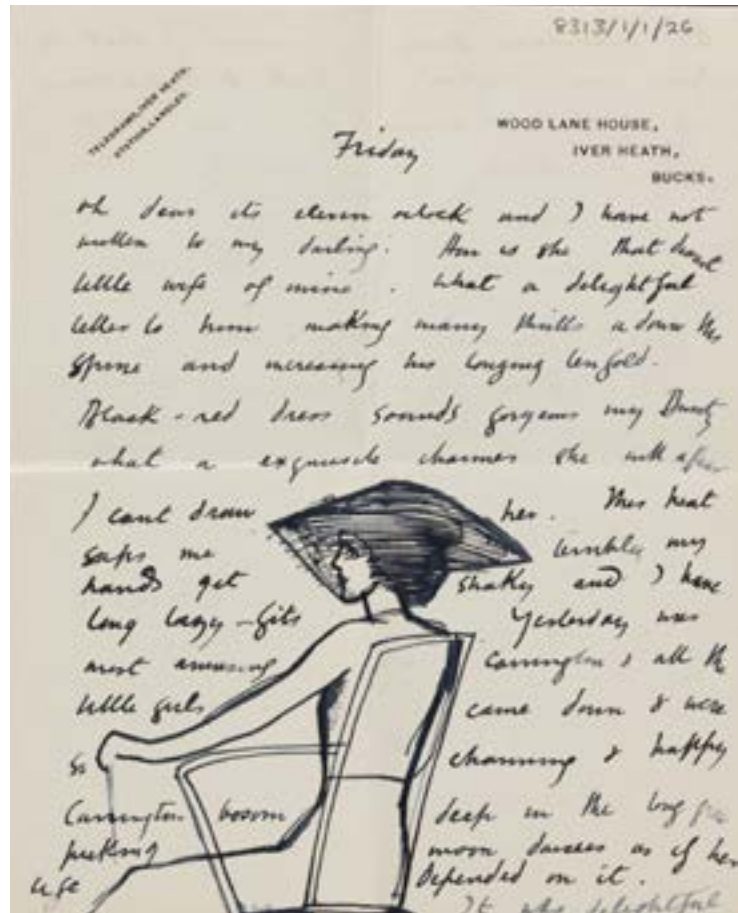 8313/1/1/26
TELEGRAMS, IVER HEATH.
STATION, LANGLEY.
WOOD LANE HOUSE,
IVER HEATH,
BUCKS.
Friday
oh dear its eleven oclock and I have not
written to my darling. How is she that dearest
little wife of mine. What a delightful
letter to him making many thrills adown his
spine and increasing his longing tenfold.
Black-red dress sounds gorgeous my
what a exquisite charmer she will
I cant draw her. This heat
saps me terribly my
hands get shaky and I have
long lazy-fits Yesterday was
most amusing Carrington & all the
little girls came down & were
so charming & happy
Carrington bosom deep in the long
picking moon daisies as if her
life depended on it.
It was delightful